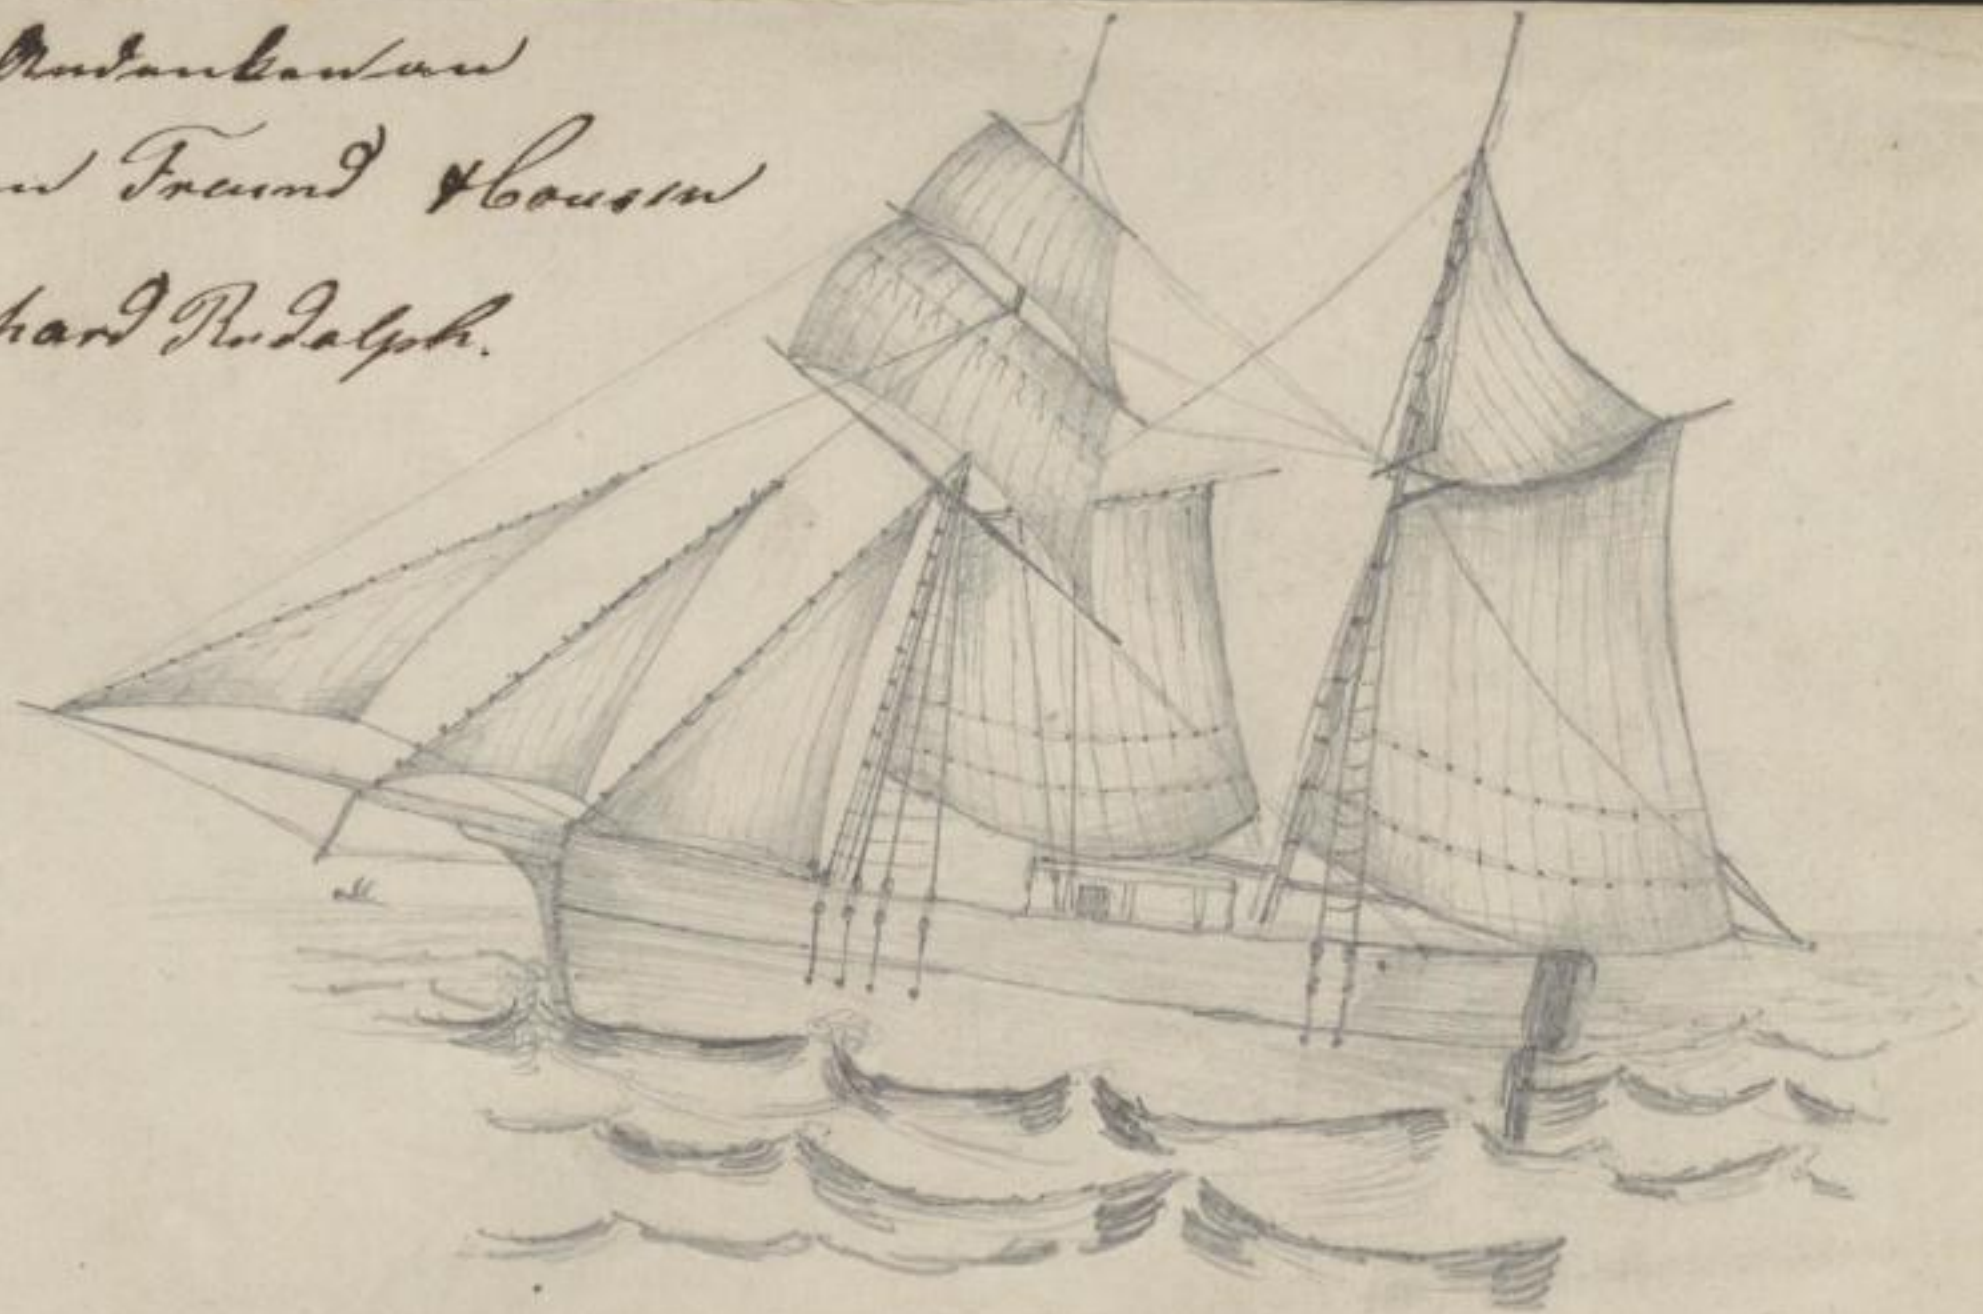 Andenken an
n Freund & Cousin
hard Rudolph.